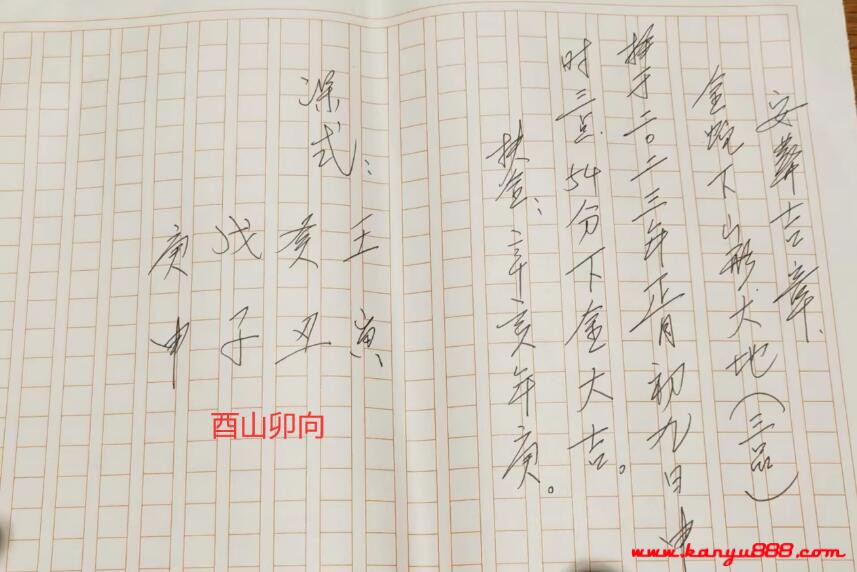 安葬吉章、
金蛇下山形大地（三品）
择于二0二三年正月初九日申
时三点54分下金大吉。
扶金：辛亥年庚。
深式：
壬寅、
癸丑
戊子
庚申
酉山卯向
www.kanyu888.com